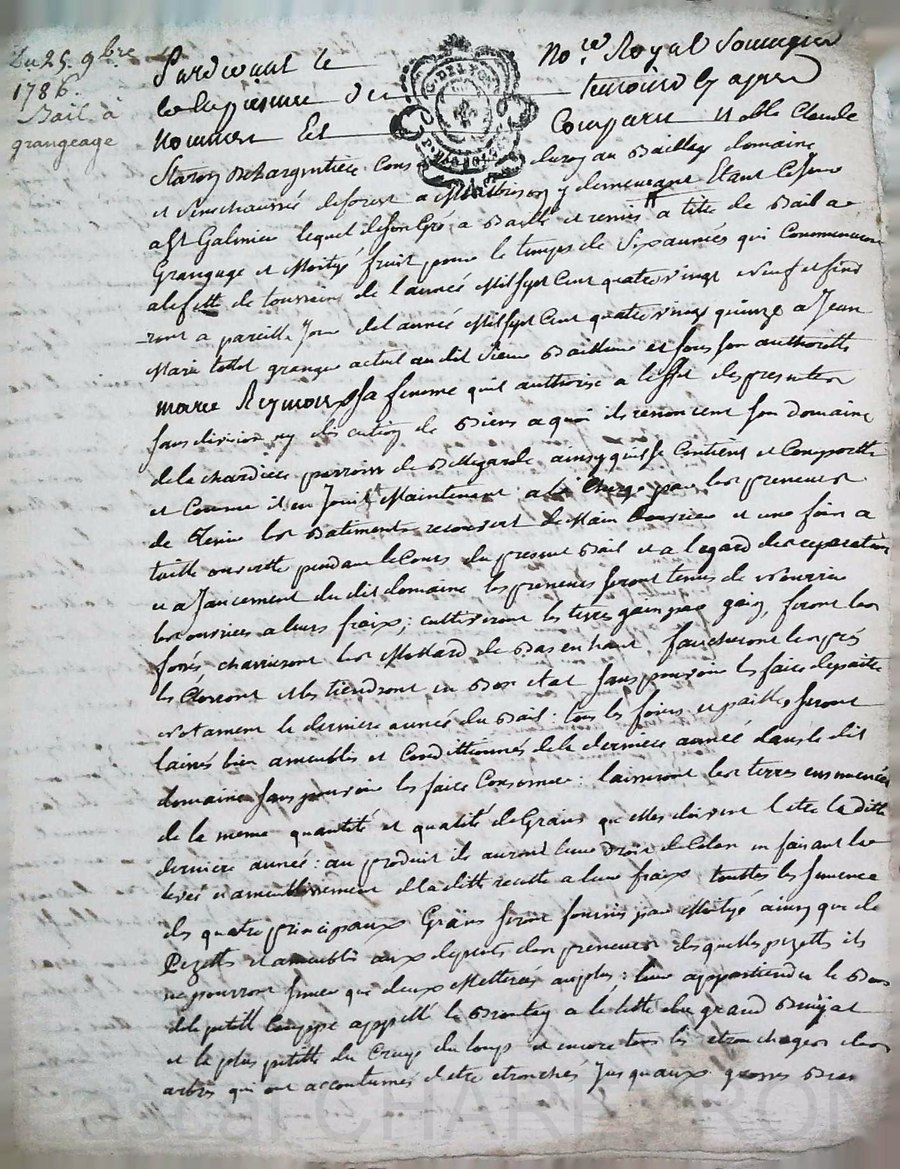 Du 25 9bre
1786.
Bail à
grangeage
Pardevant le Nore Royal Soussigné
et en presence des temoins cy apres
nommés Est Comparu Noble Claude
Staron Delargentiere Cons du roy au Bailliage domaine
et Senechaussée deforest a Montbrison y demeurant Etant Cejour
a St Galmier lequel deson Gré a Baillé et remis a titre de Bail a
Grangeage et Moityé fruit pour le temps de Six années qui Commenceront
alafette de toussains de l'année Mil Sept Cent quatre vingt neuf et fini
ront a pareille Jour del année Mil Sept Cent quatre vingt quinze a Jean
Marie granger actuel du dit Sieur Bailleur et sous son authorité
marie Reymond Sa femme quil authorise a leffet des presentes
sans division ny discution de Biens a quoi ils renoncent son Domaine
de la chardiere parroisse de Bellegarde ainsy quil se Contient et Comporte
et Comme il en Jouit Maintenant a la Charge par les preneurs
de Tenir les Batiments recouvert de Main douvrier et une fois a
taille ouverte pendant le Cours du present Bail et a legard des reparations
et a Jancement du dit domaine les preneurs seront tenus de Nourrir
les ouvriers a leurs fraix; cultiveront les terres gain par gain, feront les
fossés charrieront les Mottard de Bas en haut, faucheront les prés
les Cloront et les tiendront en Bon etat Sans pouvoir les faire depaitre
Notament la derniere année du Bail: tous les foins et pailles seront
laissés bien ameublis et Conditionnés de la derniere année dans le dit
domaine Sans pouvoir les faire Consomer: laisseront les terres ensemencées
de la meme quantité et qualité de Grains quelles doivent letre la ditte
derniere année: au produit ils auront leur droit de Colon en faisant la
levée et ameublissement de la ditte recolte a leur fraix, touttes les semences
des quatre principaux Grains seront fournis par Moityé ainsy que de
Pezettes et ameublis aux depents des preneurs desquelles pezettes ils
ne pourront semer que deux Metterées au plus; leur appartiendra le Bois
de la petitte Couppe appellé le a la tette du grand
et le plus petitte du Creux du loup et encore tous les etronchages des
arbres qui ont accoutumés detre etronchés Jusquaux grosses Bran
Pascal CHARPTRON